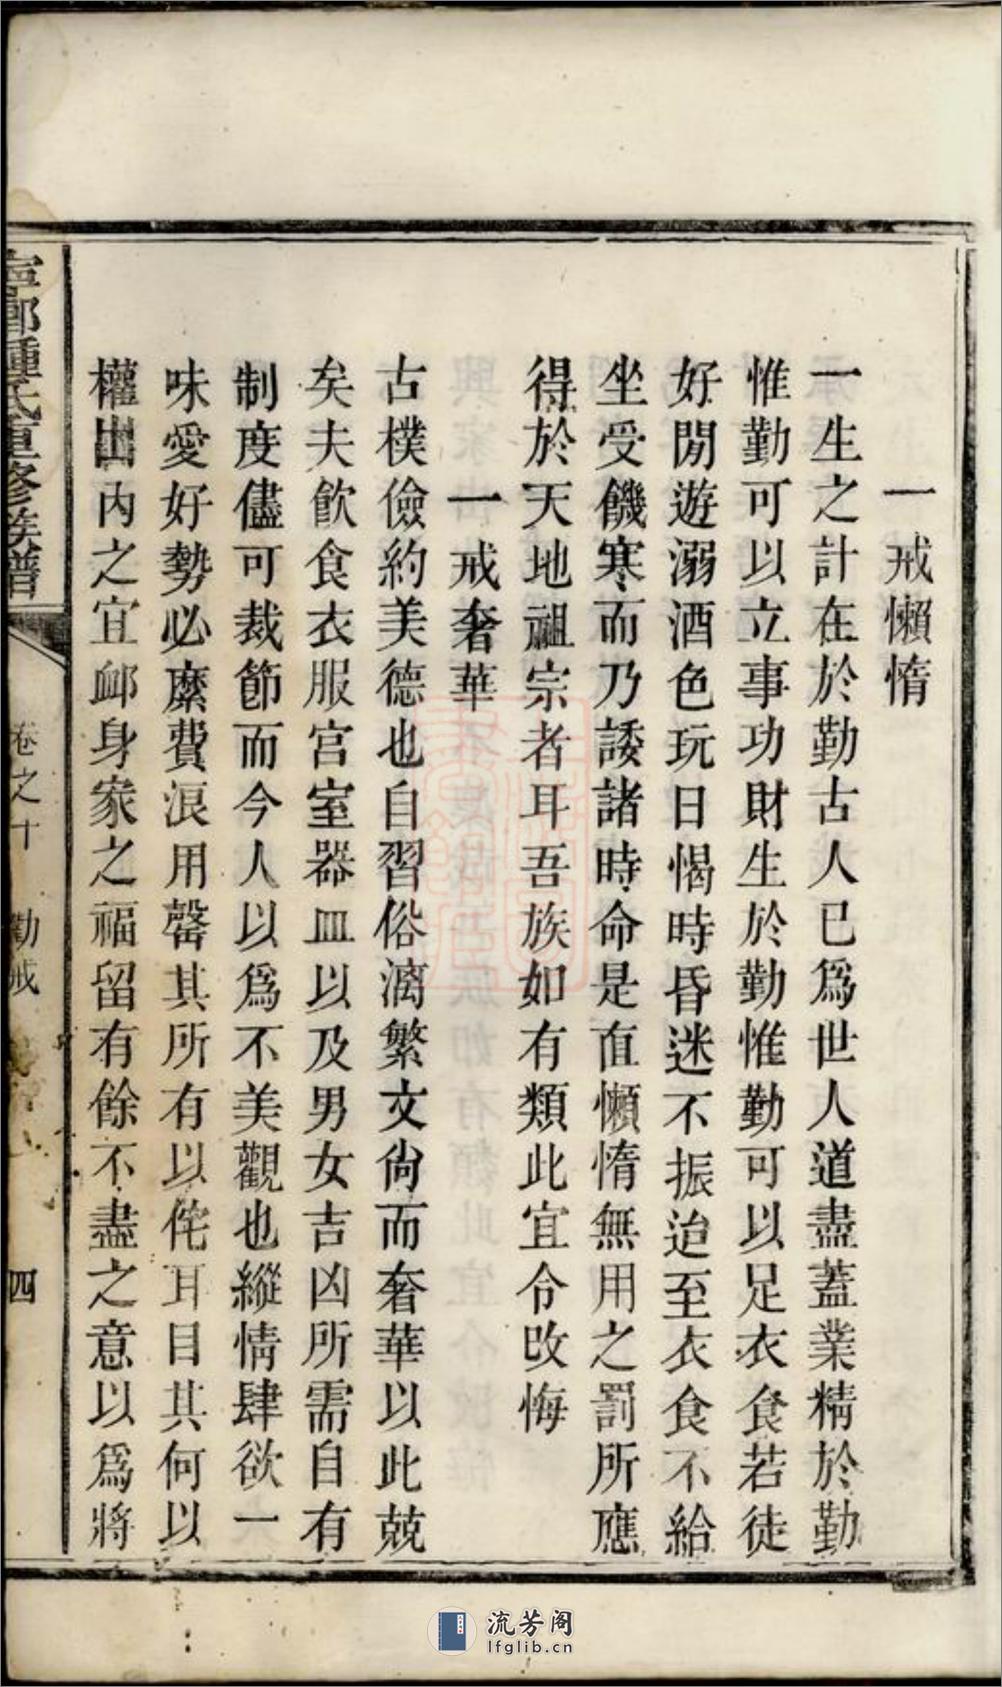 一戒懶惰
一生之計在於勤古人已爲世人道盡蓋業精於勤
惟勤可以立事功財生於勤惟勤可以足衣食若徒
好閒遊溺酒色玩日愒時昏迷不振迨至衣食不給
坐受饑寒而乃諉諸時命是直懶惰無用之罰所應
得於天地祖宗者耳吾族如有類此宜令改悔
一戒奢華
古樸儉約美德也自習俗漓繁文尙而奢華以此兢
矣夫飮食衣服宫室器皿以及男女吉凶所需自有
制度儘可裁節而今人以爲不美觀也縱情肆欲一
味愛好勢必縻費浪用罄其所有以侘耳目其何以
權出內之宜䘏身家之福留有餘不盡之意以爲將
鍾氏重修族譜
卷之十
勸戒
四
流芳阁
lfglib.cn